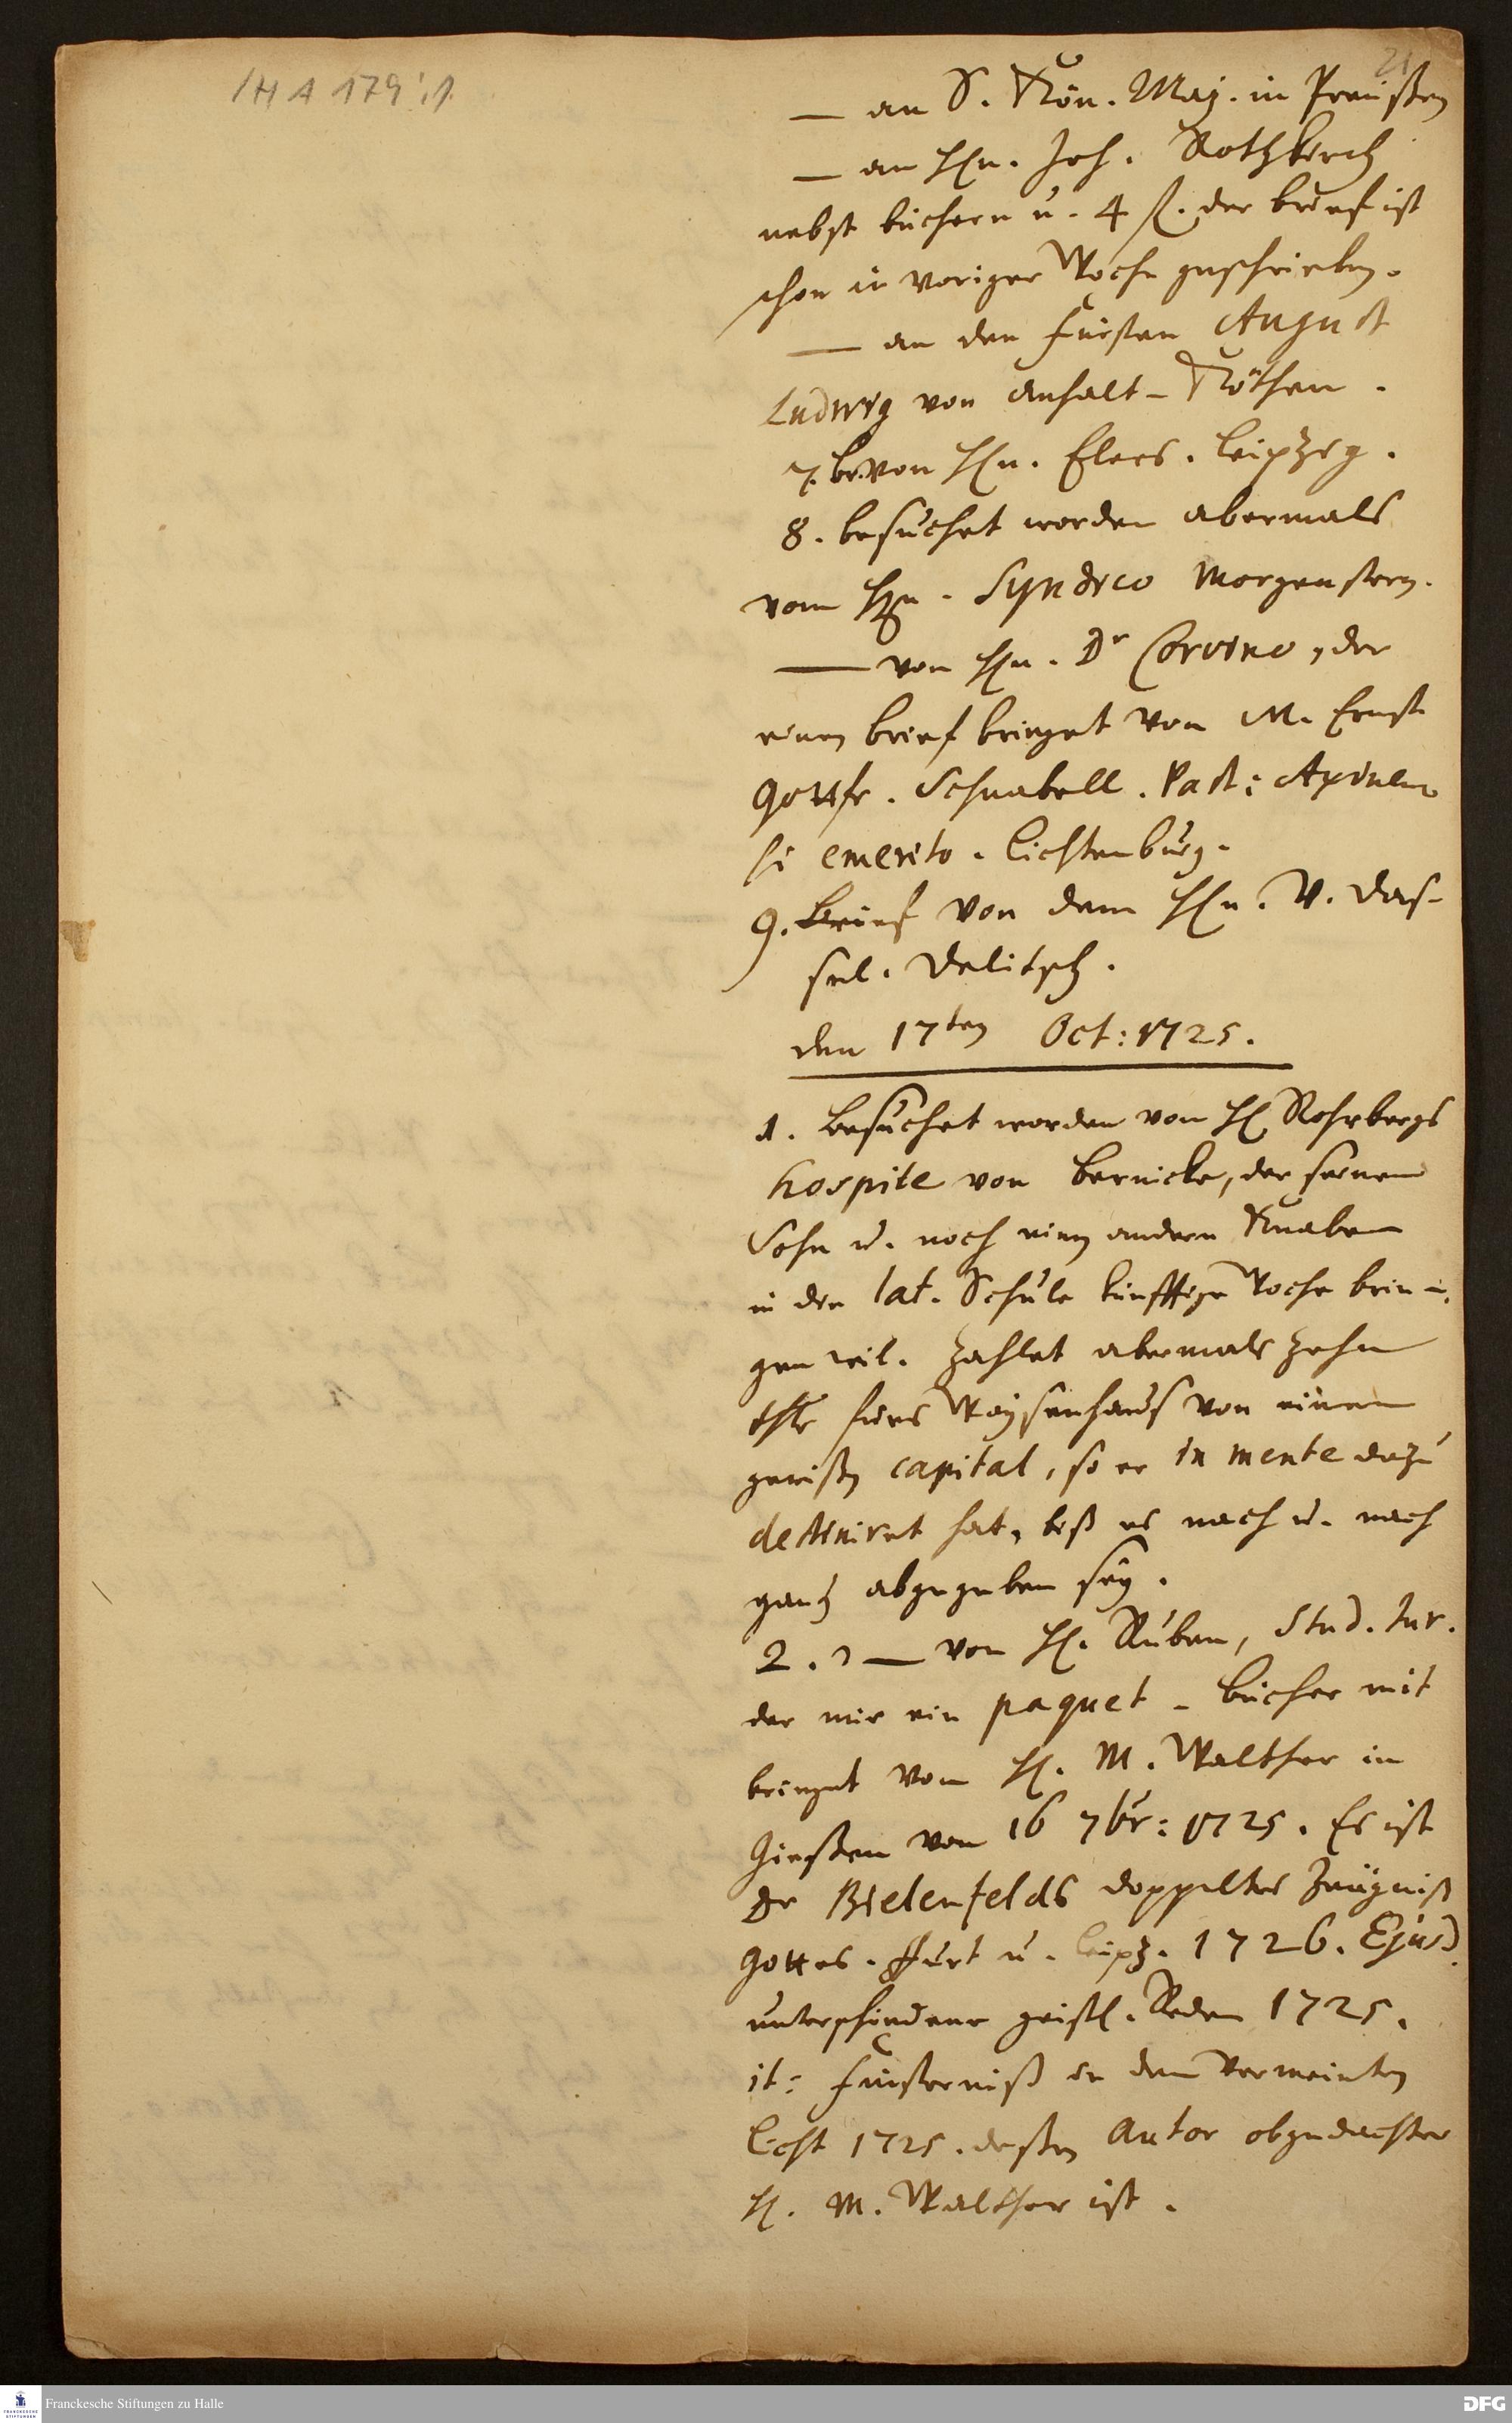 /H A 179:1
21
— an S. Kön. Maj. in Preußen
— an Hn. Joh. Rothkirch
nebst büchern u. 4 f. der brief ist
schon in voriger Woche geschrieben.
— an den Fürsten August
Ludwig von Anhalt-Köthen.
7. br. von Hn. Elers. Leipzig.
8. besuchet worden abermals
vom Hrn. Syndico Morgenstern.
— von Hn. Dr Corvino, der
einen brief bringet von M. Ernst
Gottfr. Schnabell. Past: Apinen
si emerito. Lichtenburg.
9. Brief von dem Hn. V. Das-
sel. Delitsch.
den 17ten Oct: 1725.
1. Besuchet worden von H. Rohrbergs
hospite von Bernicke, der seinen
Sohn u. noch einen andern Knaben
in die lat. Schule künfftige Woche brin-
gen wil. zahlet abermals zehn
thlr fürs Waysenhaus von einem
gewißen capital, so er in mente dazu
destiniret hat, biß es nach u. nach
gantz abgegeben sey.
2. — von H. Ruben, Stud. Jur.
der mir ein paquet - Bücher mit
bringet vom H. M. Walther in
Gießen vom 16 7br: 1725. Es ist
Dr Bielenfelds doppeltes Zeügniß
Gottes. Ffurt u. Leipz. 1726. Ejusd.
unterschiedene geistl. Reden 1725.
it: Finsterniß in dem vermeinten
Licht 1725. deßen Autor obgedachter
H. M. Walther ist.
Franckesche Stiftungen zu Halle
DFG